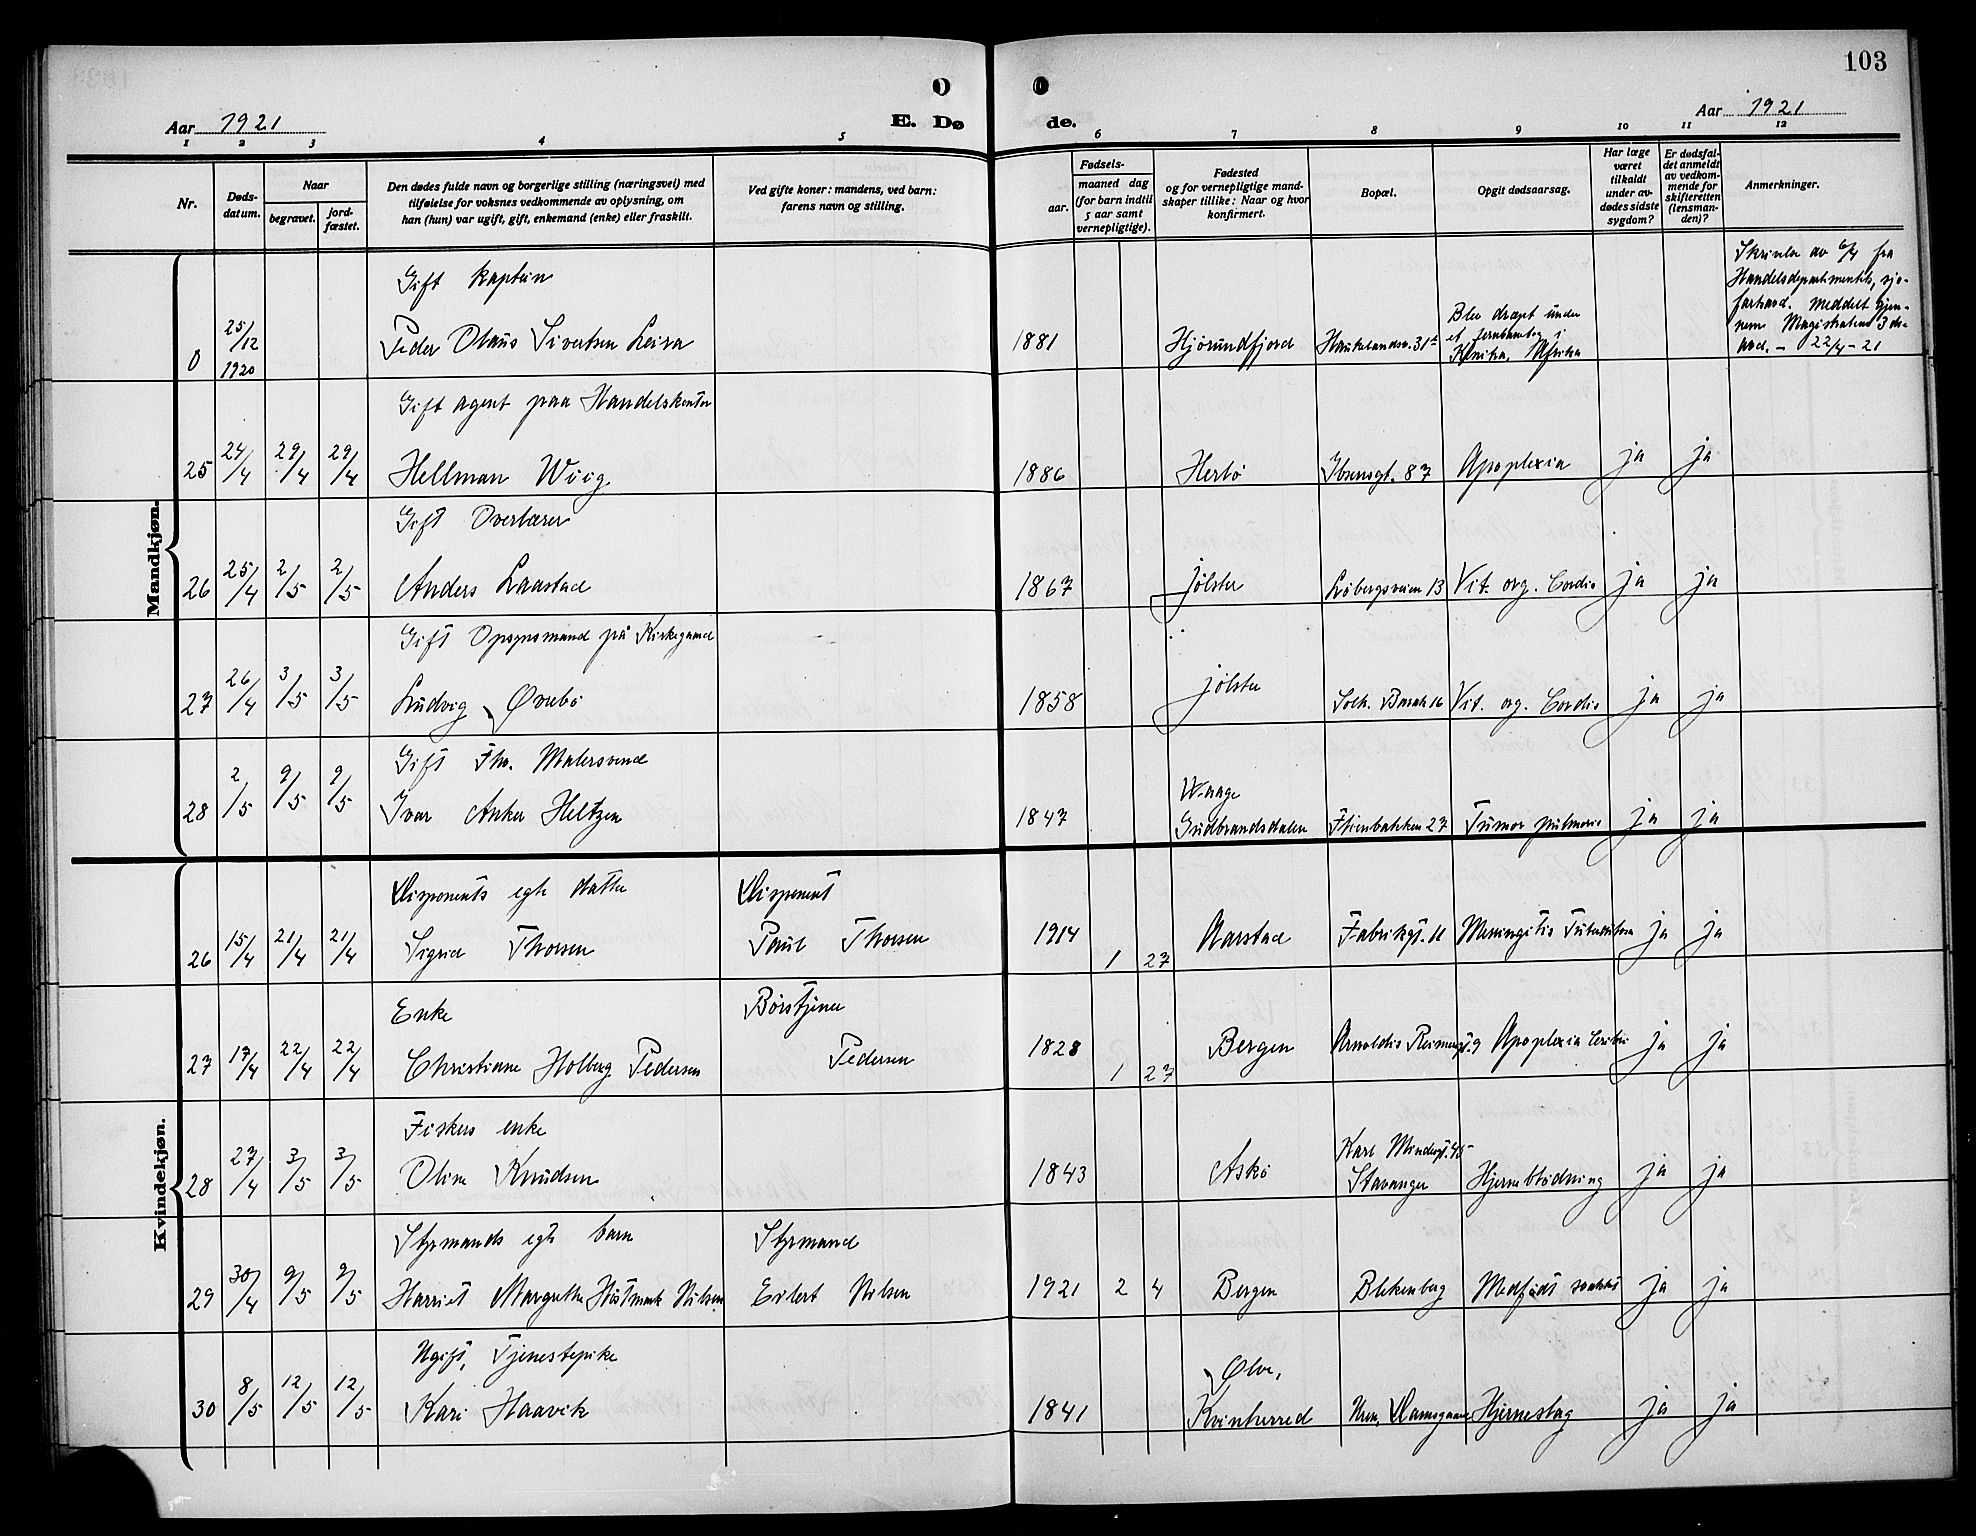 103
O O
Aar 1921 E. Dø de. Aar 1921
1 2 3 4 5 6 7 8 9 10 11 12
Nr.
Døds-
datum.
Naar
begravet.
jord-
fæstet.
Den dødes fulde navn og borgerlige stilling (næringsvei) med
tilføielse for voksnes vedkommende av oplysning, om
han (hun) var ugift, gift, enkemand (enke) eller fraskilt.
Ved gifte koner: mandens, ved barn:
farens navn og stilling.
Fødsels-
aar.
maaned dag
(for barn indtil
5 aar samt
vernepligtige).
Fødested
og for vernepligtige mand-
skaper tillike: Naar og hvor
konfirmert.
Bopæl.
Opgit dødsaarsag.
Har læge
været
tilkaldt
under av-
dødes sidste
sygdom?
Er dødsfal-
det anmeldt
av vedkom-
mende for
skifteretten
(lensman-
den)?
Anmerkninger.
Mandkjøn.
Gift kaptein
0 25/12 1920 Peder Olaus Sivertsen Leira 1881 Hjørundfjord Haukelandsv. 31a
Blev dræpt under
et jernbanetog i
Afrika
Skrivelse av 6/4 fra
Handelsdepartementet, sjø-
fartsavd. meddelt gjen-
nem Magistratens 3 die
avd. - 22/4 - 21
Gift agent paa Handelskontor
25 24/4 29/4 29/4 Hellman Wiig 1886 Herlø Ibsensgt. 87 Apoplexia ja ja
Gift Overlærer
26 25/4 2/5 2/5 Anders Laastad 1867 Jølster Løbergsveien 13 Vit. org. Cordis ja ja
Gift Opsynsmand på Kirkegaard
27 26/4 3/5 3/5 Ludvig Øvrebø 1858 Jølster 16 Vit. org. Cordis ja ja
Gift Fhv. Malersvend
28 2/5 9/5 9/5 Ivar Anker Heltzen 1847 Waage
Gudbrandsdalen 27 Tumor pulmonis ja ja
Kvindekjøn.
Disponents egte datter Disponent
26 15/4 21/4 21/4 Sigrid Thorsen Paul Thorsen 1914 1 27 Aarstad Fabrikgt. 11 Meningitis Tuberkulosa ja ja
Enke Børstjener
27 17/4 22/4 22/4 Christiane Holberg Pedersen Pedersen 1828 1 27 Bergen Arnoldus Reimersgt. 9 Apoplexia Cerebri ja ja
Fiskers enke
28 27/4 3/5 3/5 Oline Knudsen 1843 Askø Karl 45
Stavanger Hjerneblødning ja ja
Styrmands egte barn Styrmand
29 30/4 9/5 9/5 Harriet Margrethe Nilsen Eilert Nilsen 1921 2 4 Bergen Blekenberg Medfødt svakhet ja ja
Ugift, Tjenestepike
30 8/5 12/5 12/5 Kari Haavik 1841 Ølve,
Kvinherred Hjerneslag ja ja